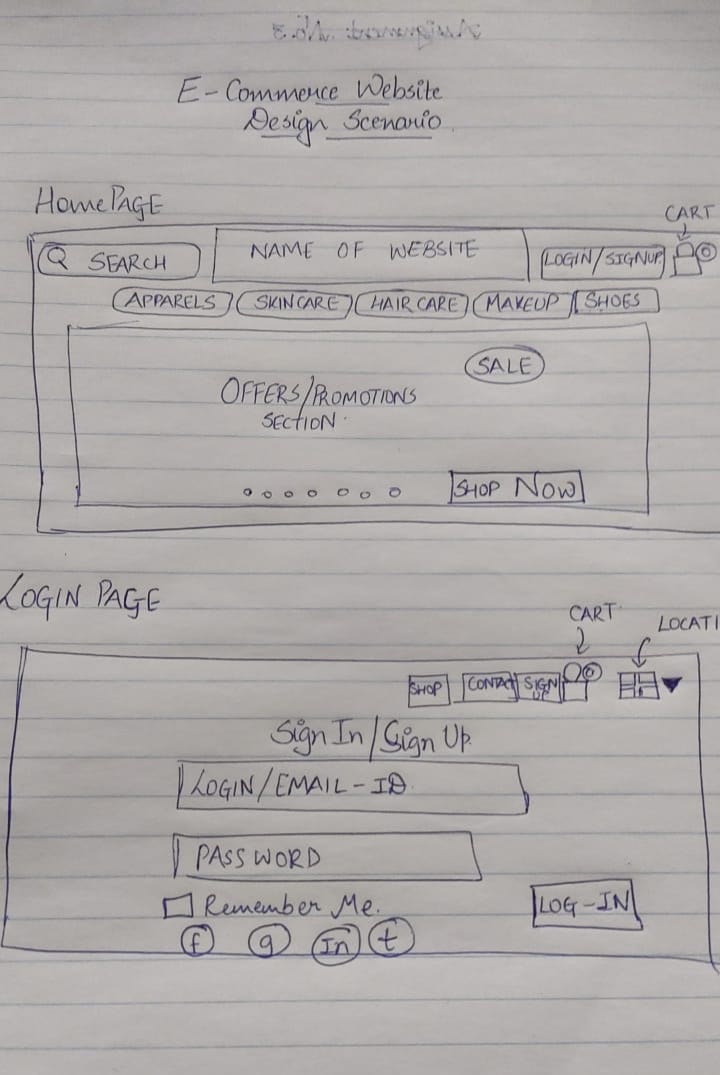 E-Commerce Website
Design Scenario
HomePAGE
CART
SEARCH
NAME OF WEBSITE
LOGIN/SIGNUP
0
APPARELS
SKINCARE
HAIR CARE
MAKEUP
SHOES
SALE
OFFERS/PROMOTIONS
SECTION.
SHOP NOW
LOGIN PAGE
CART
LOCATI
SHOP
CONTACT
SIGN
UP
0
Sign In/Sign Up
LOGIN/EMAIL-ID
PASSWORD
Remember Me.
LOG-IN
f
g
In
t